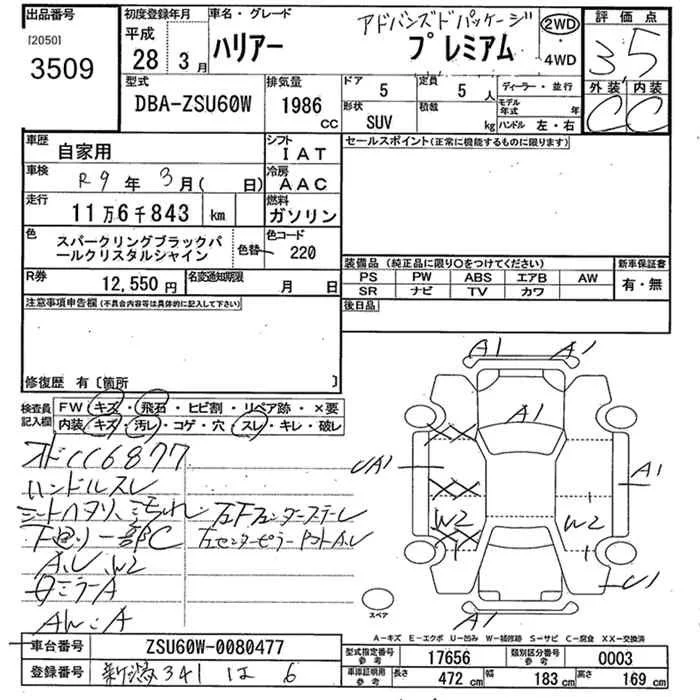 出品番号
[2050]
3509
初度登録年月
平成
28 3月
車名・グレード
ハリアー
アドバンズドパッケージ
プレミアム
2WD
・
4WD
評価点
3.5
外装 内装
C C
型式
DBA-ZSU60W
排気量
1986
cc
ドア
5
定員
5 人
形状
SUV
積載
kg
ディーラー・並行
モデル年式 年
ハンドル 左・右
車歴
自家用
シフト
IAT
車検
R9年 3月( 日)
冷房
AAC
走行
11万6千843 km
燃料
ガソリン
色
スパークリングブラックパ
ールクリスタルシャイン
色替
色コード
220
R券
12,550円
名変通知期限
月 日
セールスポイント(正常に機能するものに限ります)
装備品(純正品に限り○をつけてください)
新車保証書
PS PW ABS エアB AW
SR ナビ TV カワ
有・無
後日品
注意事項申告欄(不具合内容等は具体的に記入して下さい)
修復歴 有〔箇所 〕
検査員
記入欄
FW キズ・飛石・ヒビ割・リペア跡・×要
内装 キズ・汚レ・コゲ・穴・スレ・キレ・破レ
ハンドルスレ
左Fフェンダーステーレ
下回り一部C
A.U.W2
ミラーA
AW:A
A1 A1
A1
UA1
A1
W2
W2
U1
A1
スペア
A-キズ E-エクボ U-凹み W-補修跡 S-サビ C-腐食 XX-交換済
車台番号
ZSU60W-0080477
登録番号
新潟341 は 6
型式指定番号
参考
17656
類別区分番号
参考
0003
車庫証明用
参考
長さ
472 cm
幅
183 cm
高さ
169 cm